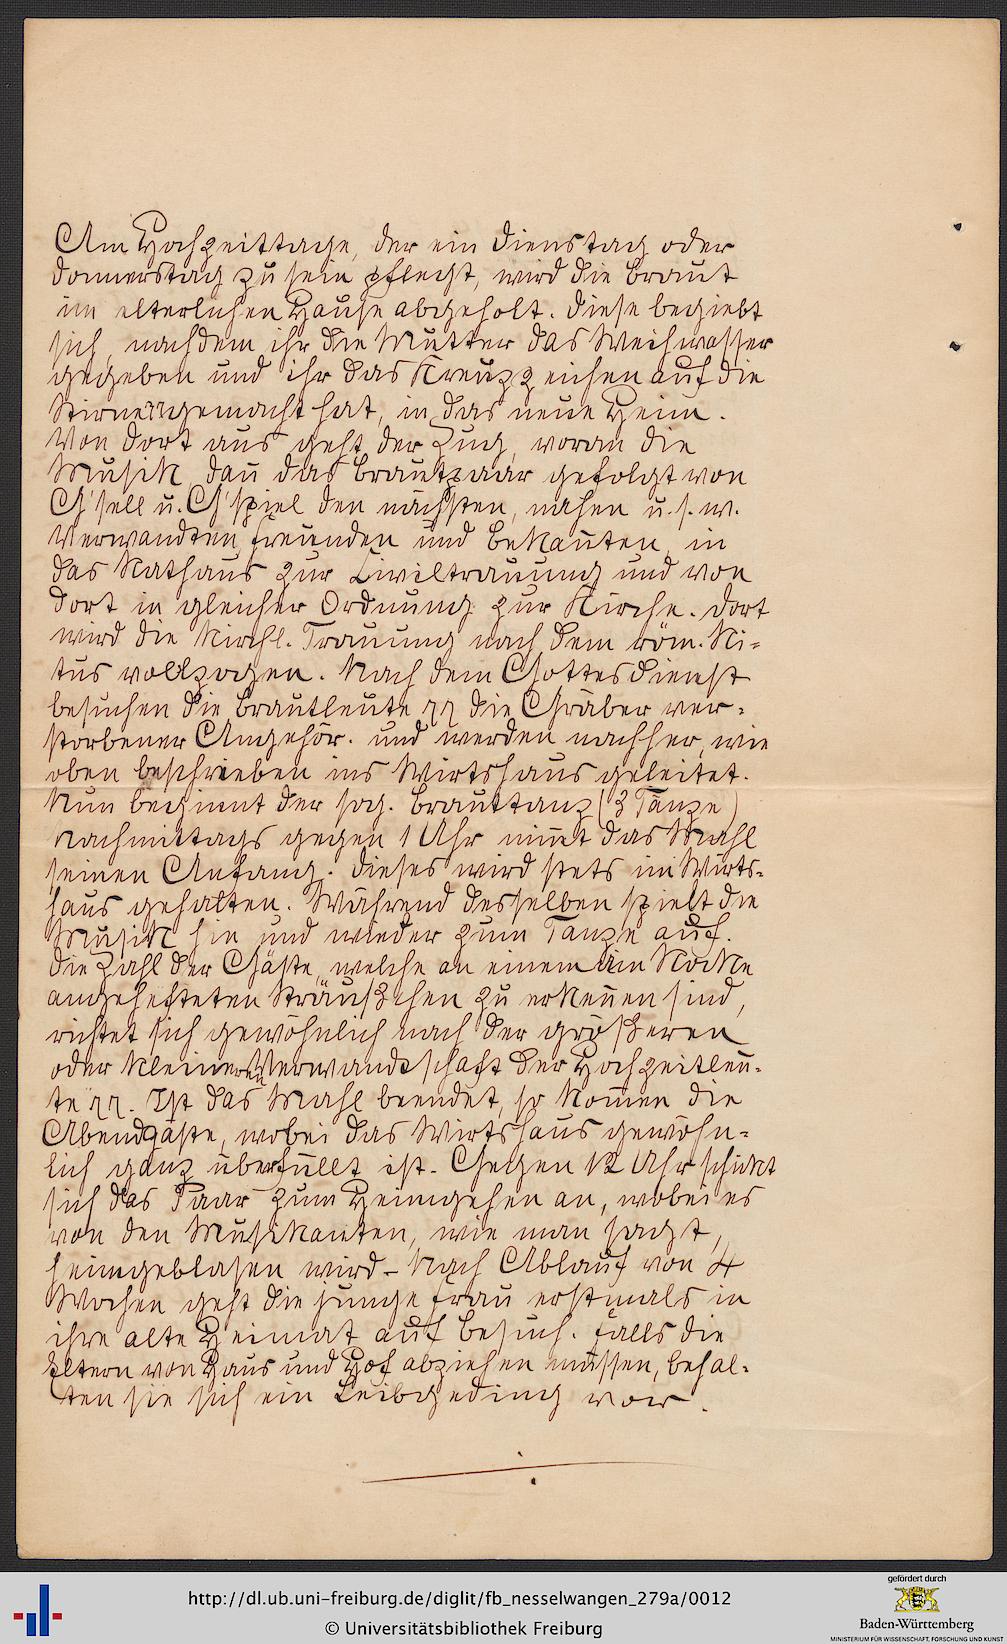 Am Hochzeittage, der ein Dienstag oder
Donnerstag zu sein pflegt, wird die Braut
im elterlichen Hause abgeholt. Diese begiebt
sich, nachdem ihr die Mutter das Weihwasser
gegeben und ihr das Kreuzzeichen auf die
Stirne gemacht hat, in das neue Heim.
Von dort aus geht der Zug, voran die
Musik, dan̄ das Brautpaar gefolgt von
G'sell u. G'spiel den nächsten, nahen u. s. w.
Verwandten, Freunden und Bekan̄ten, in
das Rathaus zur Civiltrauung und von
dort in gleicher Ordnung zur Kirche. Dort
wird die kirchl. Trauung nach dem röm. Ri-
tus vollzogen. Nach dem Gottesdienst
besuchen die Brautleute die Gräber ver-
storbener Angehör. und werden nachher, wie
oben beschrieben ins Wirtshaus geleitet.
Nun beginnt der sog. Brauttanz (3 Tänze)
Nachmittags gegen 1 Uhr nim̄t das Mahl
seinen Anfang. Dieses wird stets im Wirts-
haus gehalten. Während desselben spielt die
Musik hin und wieder zum Tanze auf.
Die Zahl der Gäste, welche an einem am Rocke
angehefteten Sträußchen zu erken̄en sind,
richtet sich gewöhnlich nach der größeren
oder kleineren Verwandtschaft der Hochzeitleu-
te. Ist das Mahl beendet, so kom̄en die
Abendgäste, wobei das Wirtshaus gewöhn-
lich ganz überfüllt ist. Gegen 12 Uhr schickt
sich das Paar zum Heimgehen an, wobei es
von den Musikanten, wie man sagt,
heimgeblasen wird – Nach Ablauf von 4
Wochen geht die junge Frau erstmals in
ihre alte Heimat auf Besuch. Falls die
Eltern von Haus und Hof abziehen müssen, behal-
ten sie sich ein Leibgeding vor.
http://dl.ub.uni-freiburg.de/diglit/fb_nesselwangen_279a/0012
© Universitätsbibliothek Freiburg
gefördert durch
Baden-Württemberg
MINISTERIUM FÜR WISSENSCHAFT, FORSCHUNG UND KUNST